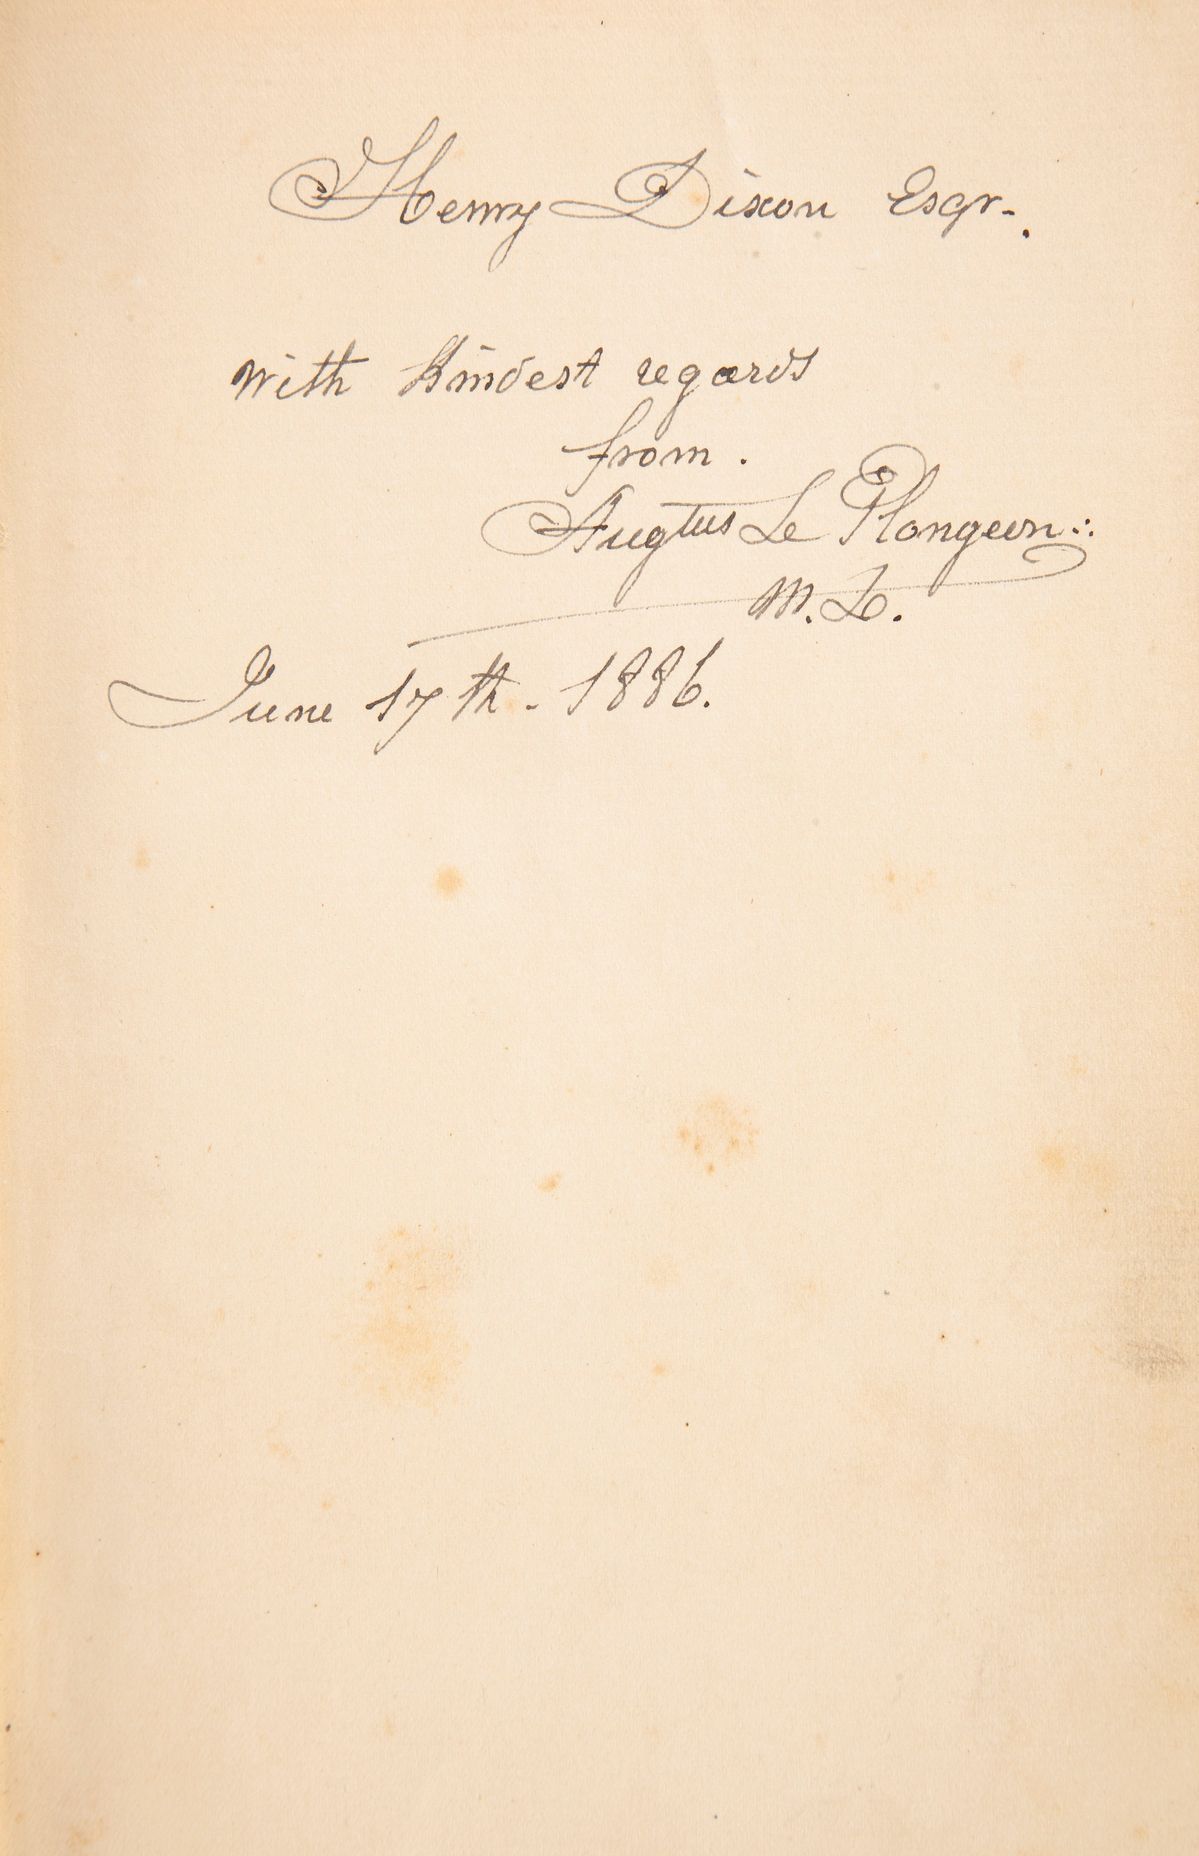 Henry Dixon Esqr.
with kindest regards
from.
Augtus Le Plongeon∴
M.D.
June 17th - 1886.